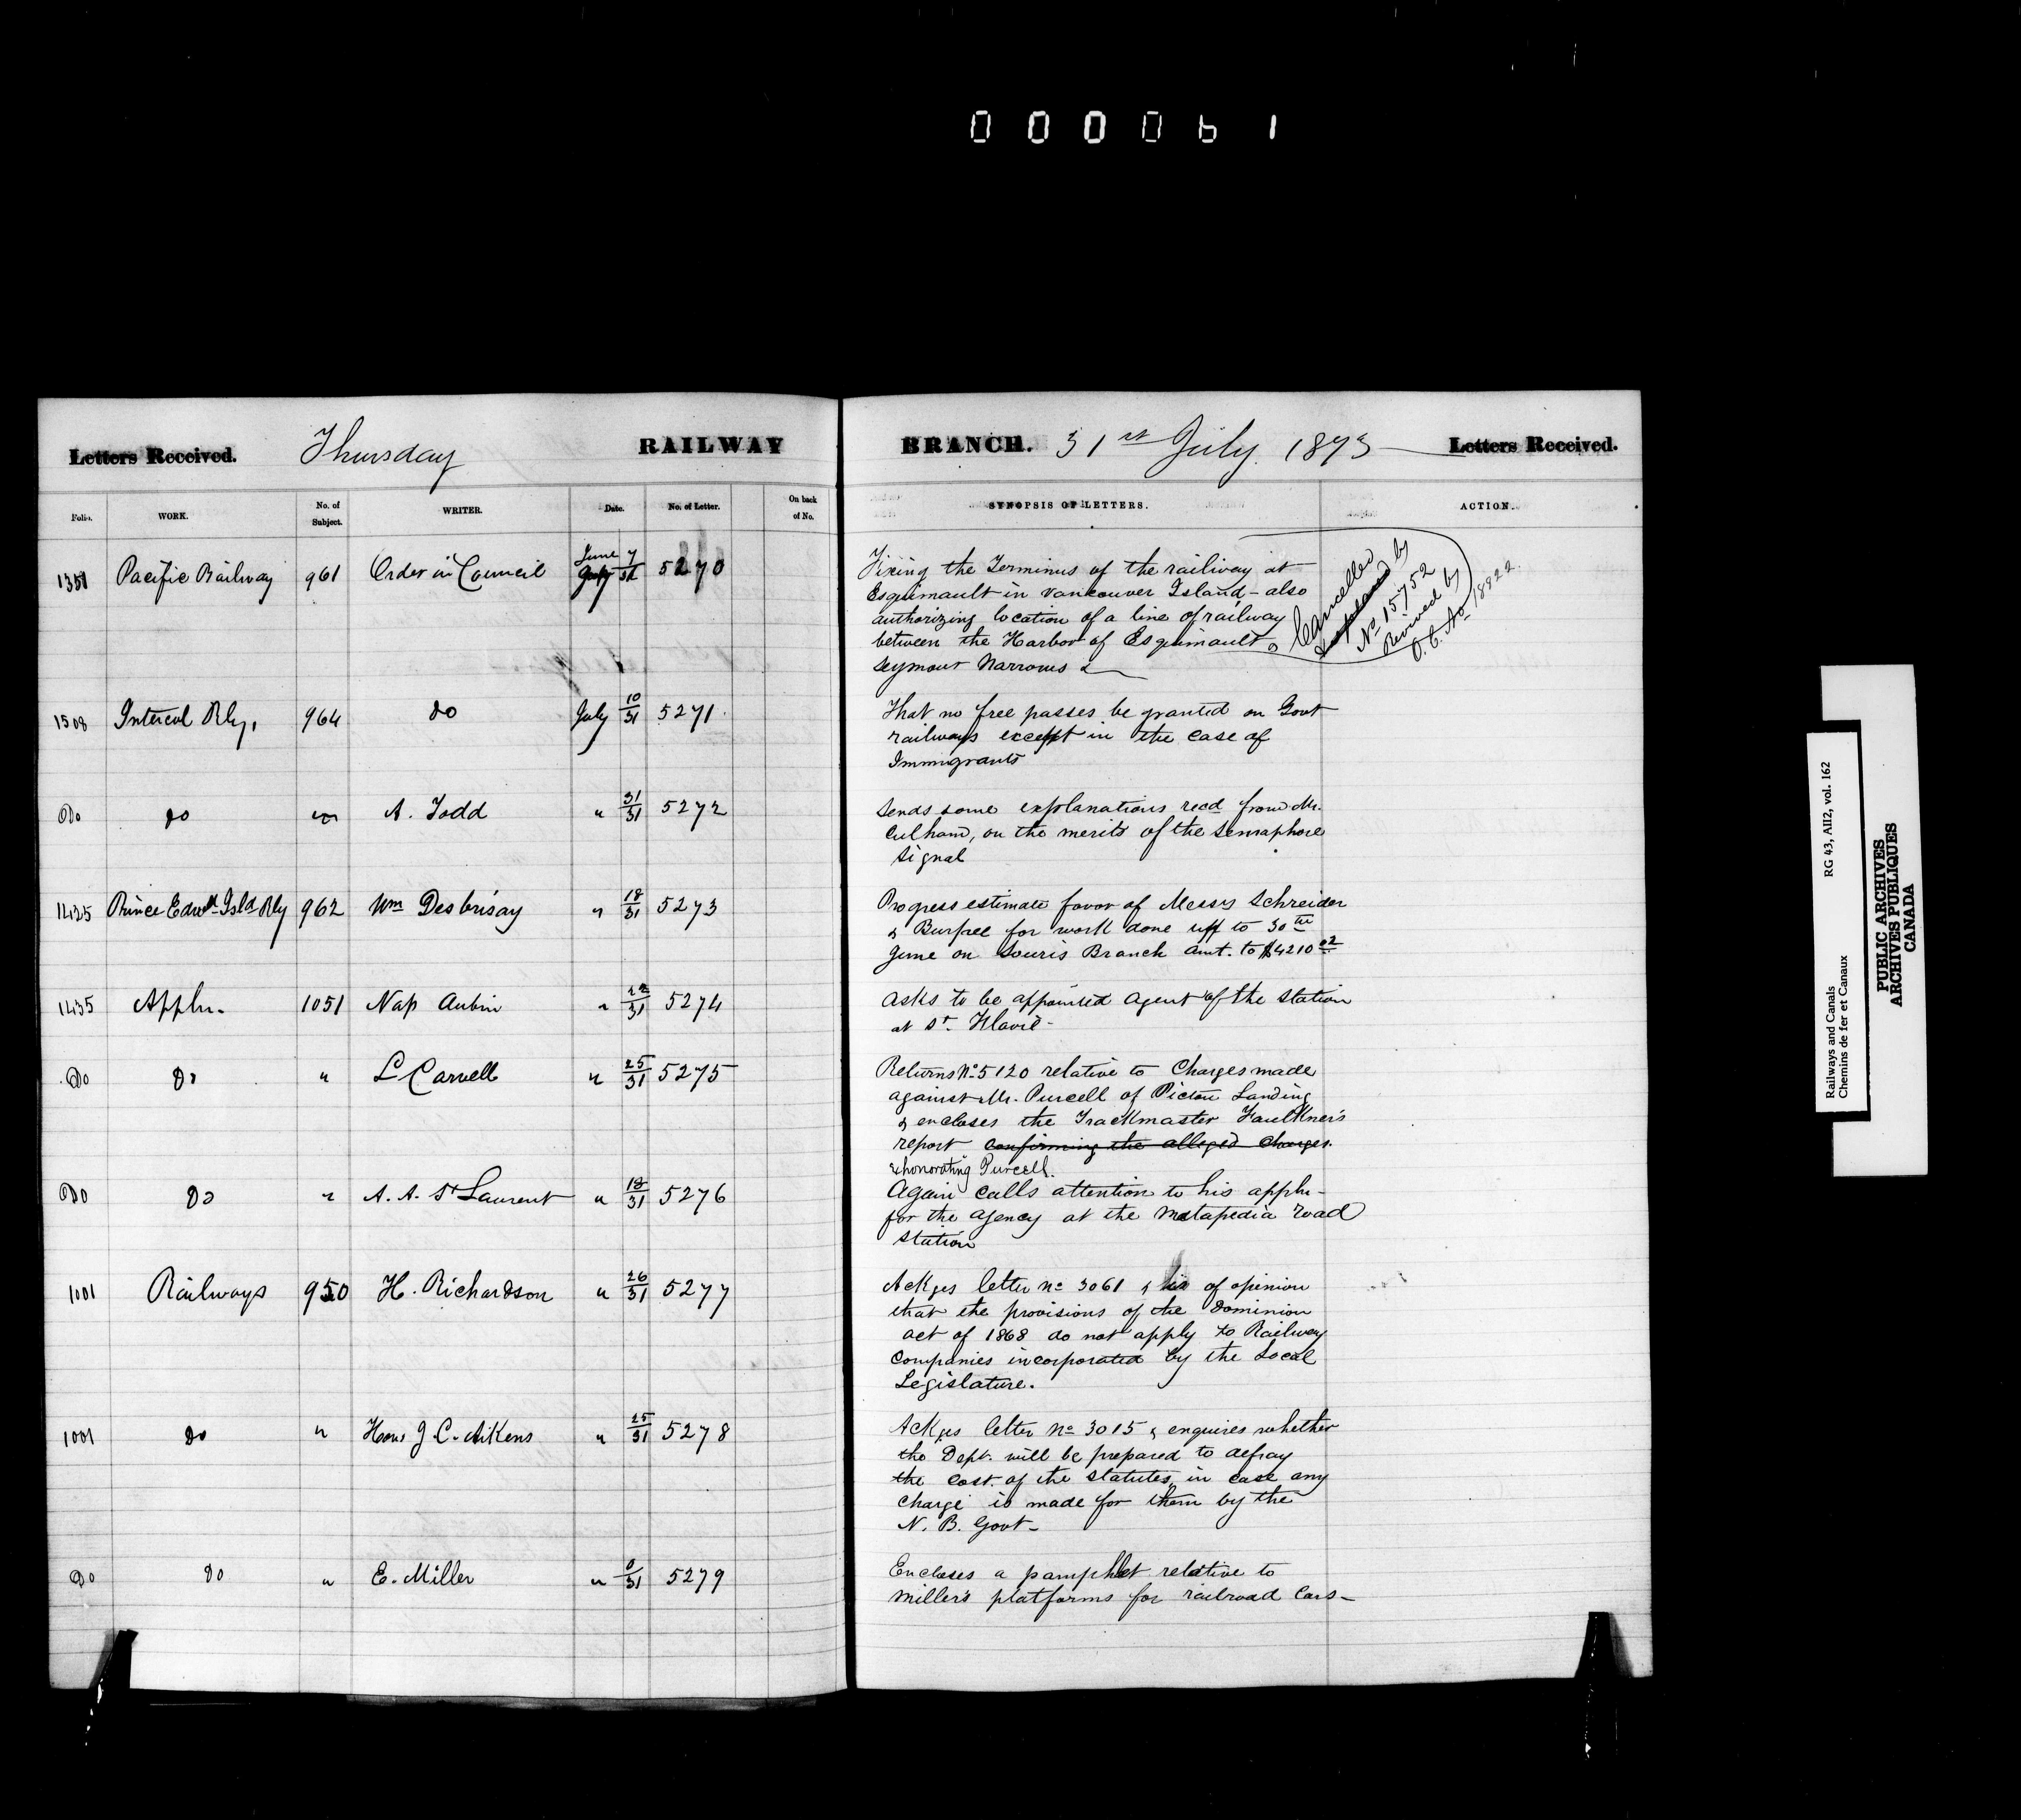 000061
Letters Received. Thursday RAILWAY BRANCH. 31st July 1873 Letters Received.
Folio. WORK. No. of Subject. WRITER. Date. No. of Letter. On back of No. SYNOPSIS OF LETTERS. ACTION.
1351 Pacific Railway 961 Order in Council June 7 July 31 5270
Fixing the Terminus of the railway at
Esquimault in Vancouver Island - also
authorizing location of a line of railway
between the Harbor of Esquimault &
Seymour Narrows &
Cancelled by
No 15752
Revived by
O.C. No 18822.
1508 Intercol Rly. 964 do July 10/31 5271
That no free passes be granted on Govt
railways except in the case of
Immigrants
Do do " A. Todd " 31/31 5272
Sends some explanations recd from Mr.
Culham, on the merits of the Semaphore
Signal
1425 Prince Edwd Isld Rly 962 Wm Desbrisay " 18/31 5273
Progress estimate favor of Messrs Schreider
& Burpee for work done up to 30th
June on Souris Branch amt. to $4210 02
1435 Appln. 1051 Nap Aubin " 22/31 5274
Asks to be appointed Agent of the Station
at St. Flavie -
Do Do " L Carvell " 25/31 5275
Returns No 5120 relative to Charges made
against Mr. Purcell of Pictou Landing
& encloses the Trackmaster Faulkner's
report confirming the alleged charges.
exhonorating Purcell.
Do Do " A. A. St Laurent " 18/31 5276
Again calls attention to his appln -
for the agency at the Matapedia road
Station
1001 Railways 950 H. Richardson " 26/31 5277
Ackges letter No 3061 & is of opinion
that the provisions of the Dominion
act of 1868 do not apply to Railway
Companies incorporated by the Local
Legislature.
1001 do " Hon. J. C. Aikens " 25/31 5278
Ackges letter No 3015 & enquires whether
the Dept. will be prepared to defray
the cost of the Statutes in case any
charge is made for them by the
N. B. Govt -
Do do " E. Miller " 0/31 5279
Encloses a pamphlet relative to
Miller's platforms for railroad Cars -
Railways and Canals RG 43, AII2, vol. 162
Chemins de fer et Canaux
PUBLIC ARCHIVES
ARCHIVES PUBLIQUES
CANADA